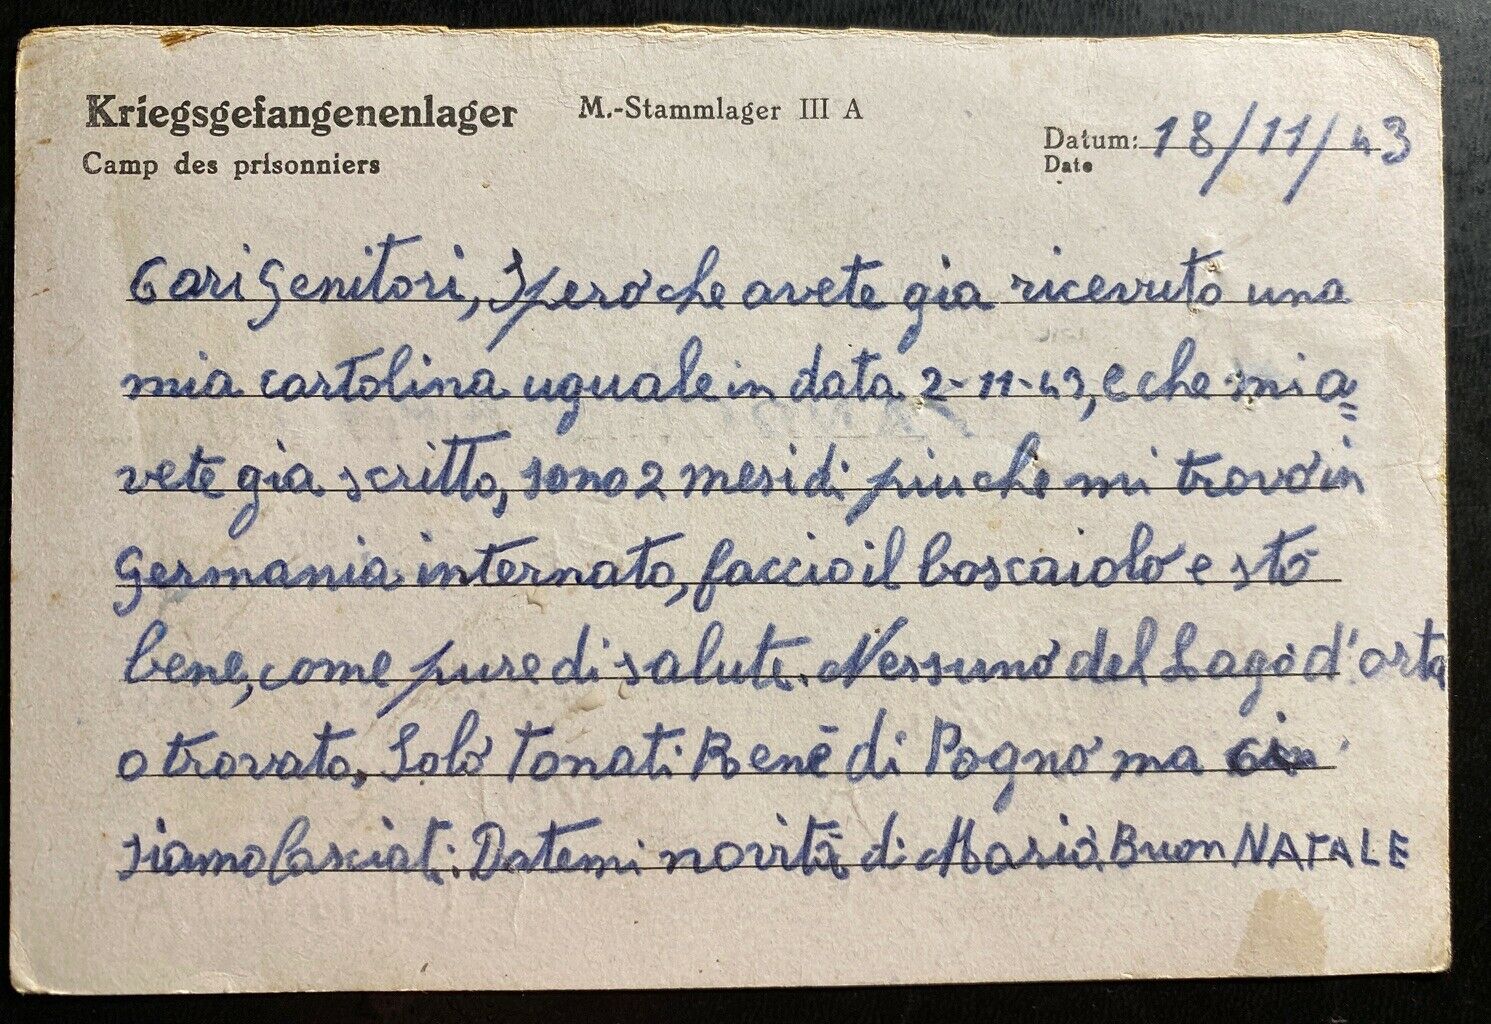 Kriegsgefangenenlager M.-Stammlager III A
Camp des prisonniers
Datum: 18/11/43
Date
Cari Genitori, Spero che avete già ricevuto una
mia cartolina uguale in data 2-11-43, e che mi a=
vete gia scritto, sono 2 mesi di piu che mi trovo in
Germania internato, faccio il boscaiolo e stò
bene, come pure di salute. Nessuno del Lago d'orta
o trovato, Solo Tonati Renè di Pogno ma ci
siamo lasciati. Datemi novità di Mario. Buon NATALE